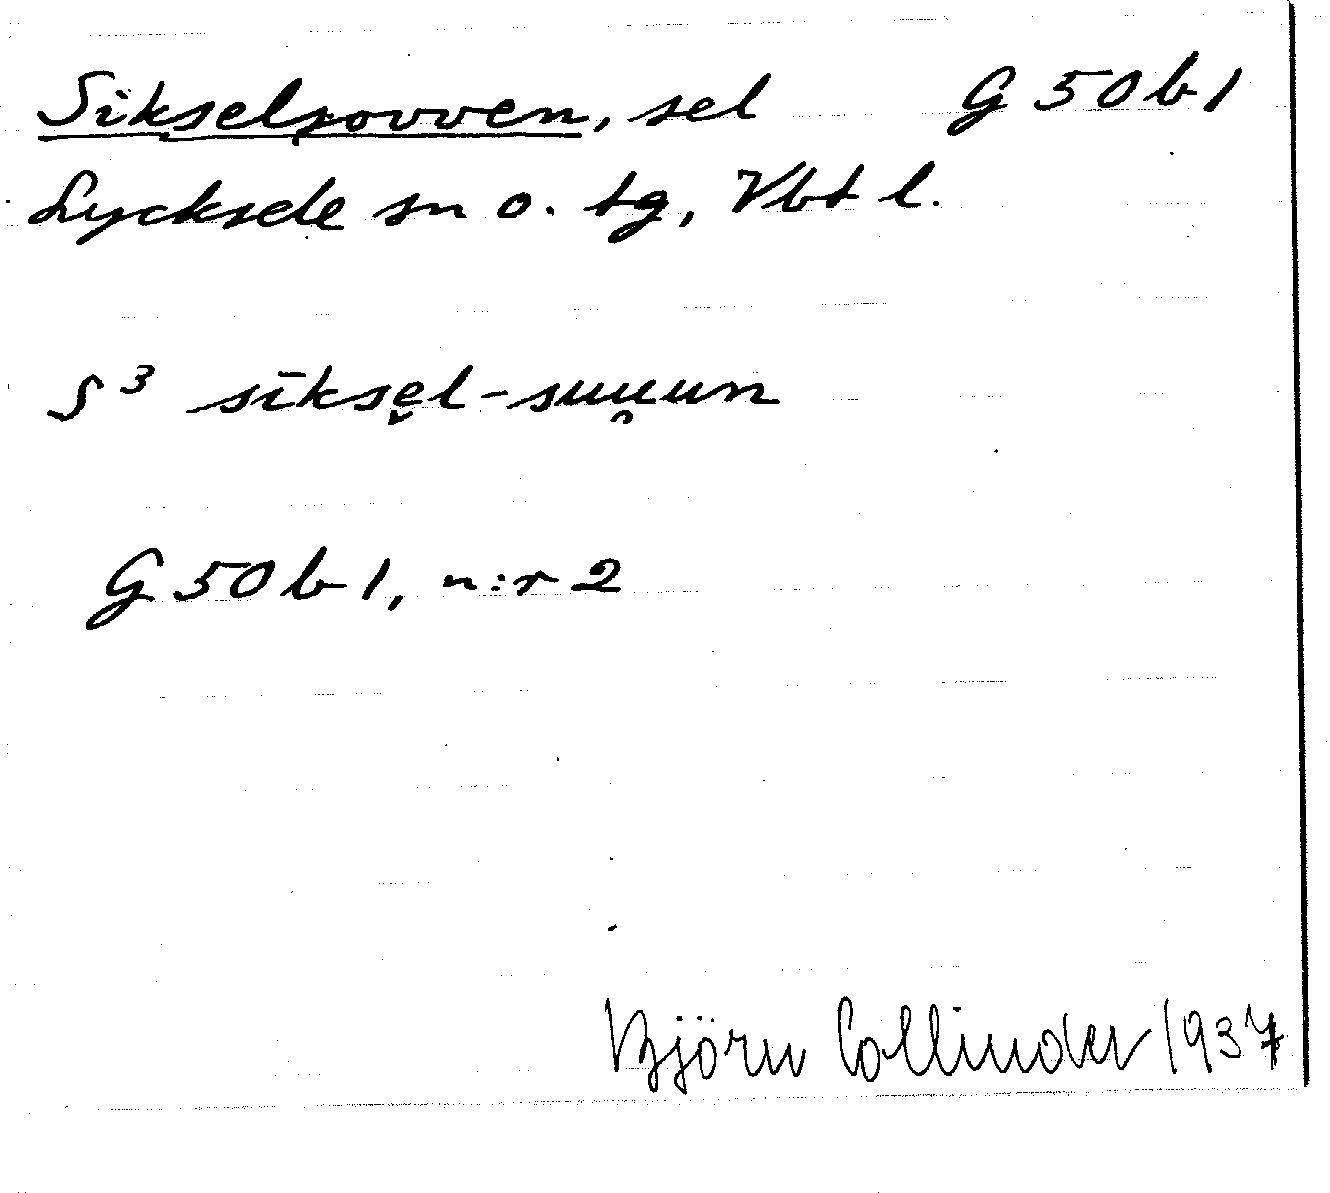 Sikselsovven, sel G 50 b 1
Lycksele sn o. tg, Vbt l.
S³ sīkse̬l-suu̯un
G 50 b 1, n:r 2
Björn Collinder 1937